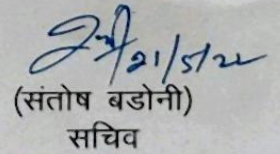 21/5/22
(संतोष बडोनी)
सचिव